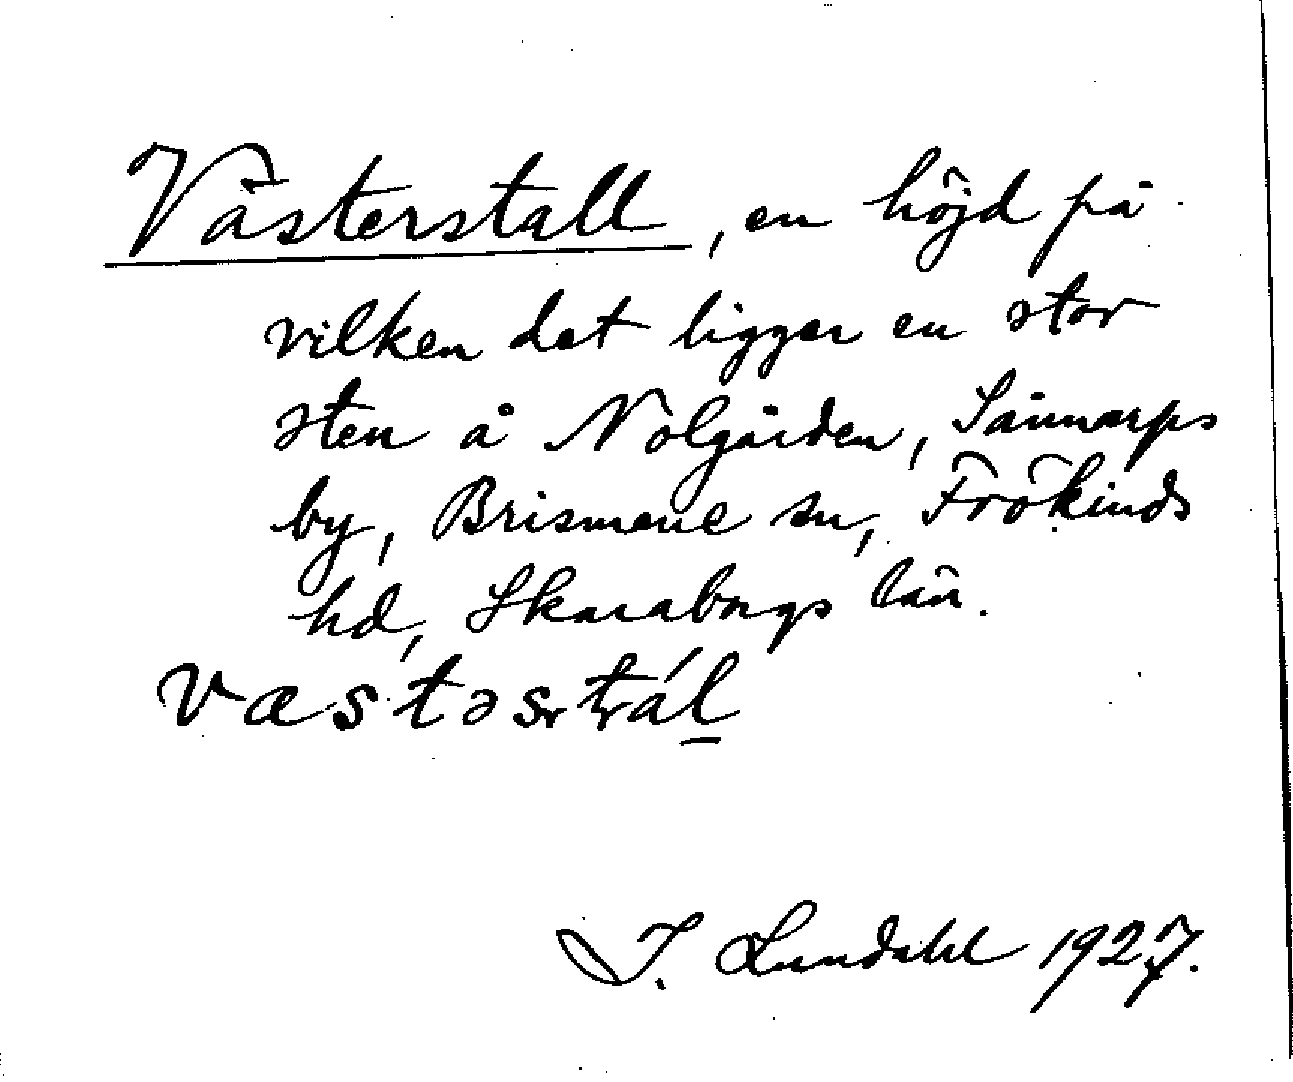 Västerstall, en höjd på
vilken det ligger en stor
sten å Nolgården, Sännarps
by, Brismene sn, Frökinds
hd, Skaraborgs län.
væstəstál
J. Lundahl 1927.